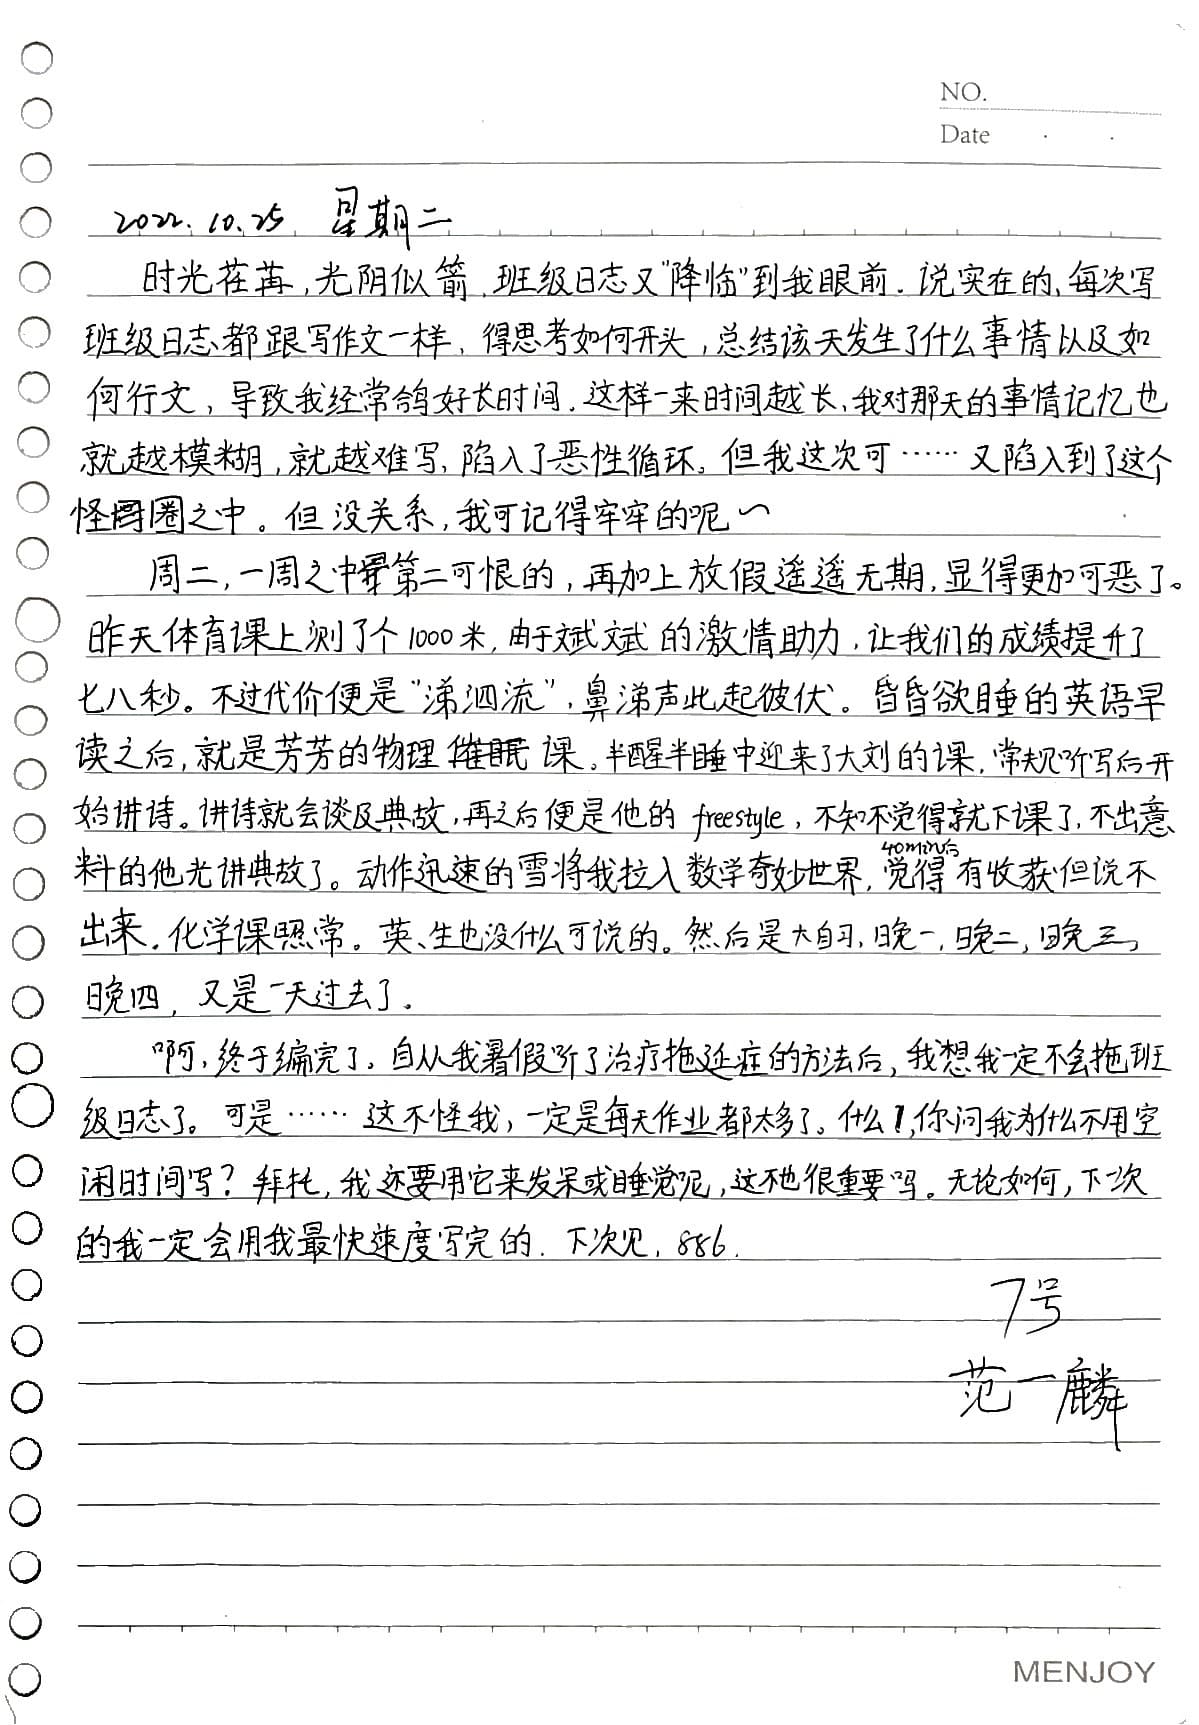 NO.
Date
2022.10.25 星期二
时光荏苒,光阴似箭,班级日志又“降临”到我眼前.说实在的,每次写
班级日志都跟写作文一样,得思考如何开头,总结该天发生了什么事情以及如
何行文,导致我经常鸽好长时间.这样一来时间越长,我对那天的事情记忆也
就越模糊,就越难写,陷入了恶性循环。但我这次可……又陷入到了这个
怪圈之中。但没关系,我可记得牢牢的呢~
周二,一周之中第二可恨的,再加上放假遥遥无期,显得更加可恶了。
昨天体育课上测了个1000米,由于斌斌的激情助力,让我们的成绩提升了
七八秒。不过代价便是“涕泗流”,鼻涕声此起彼伏。昏昏欲睡的英语早
读之后,就是芳芳的物理催眠课。半醒半睡中迎来了大刘的课,常规听写后开
始讲诗。讲诗就会谈及典故,再之后便是他的freestyle,不知不觉得就下课了,不出意
料的他光讲典故了。动作迅速的雪将我拉入数学奇妙世界,40mins觉得有收获但说不
出来.化学课照常。英、生也没什么可说的。然后是大自习,晚一,晚二,晚三,
晚四,又是一天过去了.
啊,终于编完了。自从我暑假听了治疗拖延症的方法后,我想我一定不会拖班
级日志了。可是……这不怪我,一定是每天作业都太多了。什么!,你问我为什么不用空
闲时间写?拜托,我还要用它来发呆或睡觉呢,这不也很重要吗。无论如何,下一次
的我一定会用我最快速度写完的.下次见,886.
7号
范一麟
MENJOY